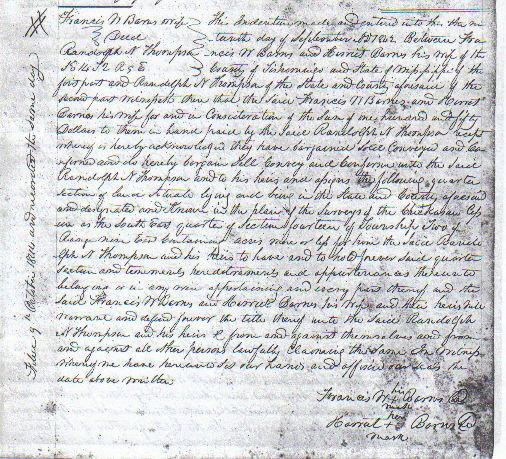 Francis W Barns & wife
Deed
Randolph N Thompson
This Indenture made and entered into this the
day of September AD 1842 Between Fra
ncis W Barns and Harriet Barns his wife of the
County of Tishomingo and State of Mississippi of the
first part and Randolph N Thompson of the State and County aforesaid of the
second part Witnesseth then that the Said Francis W Barnes and Harriet
Barnes his wife for and in Consideration of the Sum of one hundred and fifty
Dollars to them in hand paid by the Said Randolph N Thompson
whereof is hereby acknowledged they have bargained Sold Conveyed and Con
firmed and do hereby bargain Sell Convey and Confirm unto the Said
Randolph N Thompson and to his heirs and assigns the following quarter
section of land Situate lying and being in the State and County aforesaid
and designated and Known in the plan of the Surveys of the Chickasaw Ces
ion as the South East quarter of Section fourteen of Township Two of
Range East Containing acres more or less for him the Said Rando
lph N Thompson and his heirs to have and to hold forever said quarter
Section and tenements hereditaments and appurtenances thereunto
belonging or in any wise appertaining and every part thereof and the
Said Francis W Barns and Harriet Barns his wife and their heirs will
warrant and defend forever the title thereof unto the Said Randolph
N Thompson and his heirs & from and against themselves and from
and against all other persons lawfully Claiming the Same In Witness
whereof we have hereunto Set our hands and affixed our Seals the
date above written
Francis W his mark Barns
Harriet her mark Barns
Filed 9th and recorded the same day